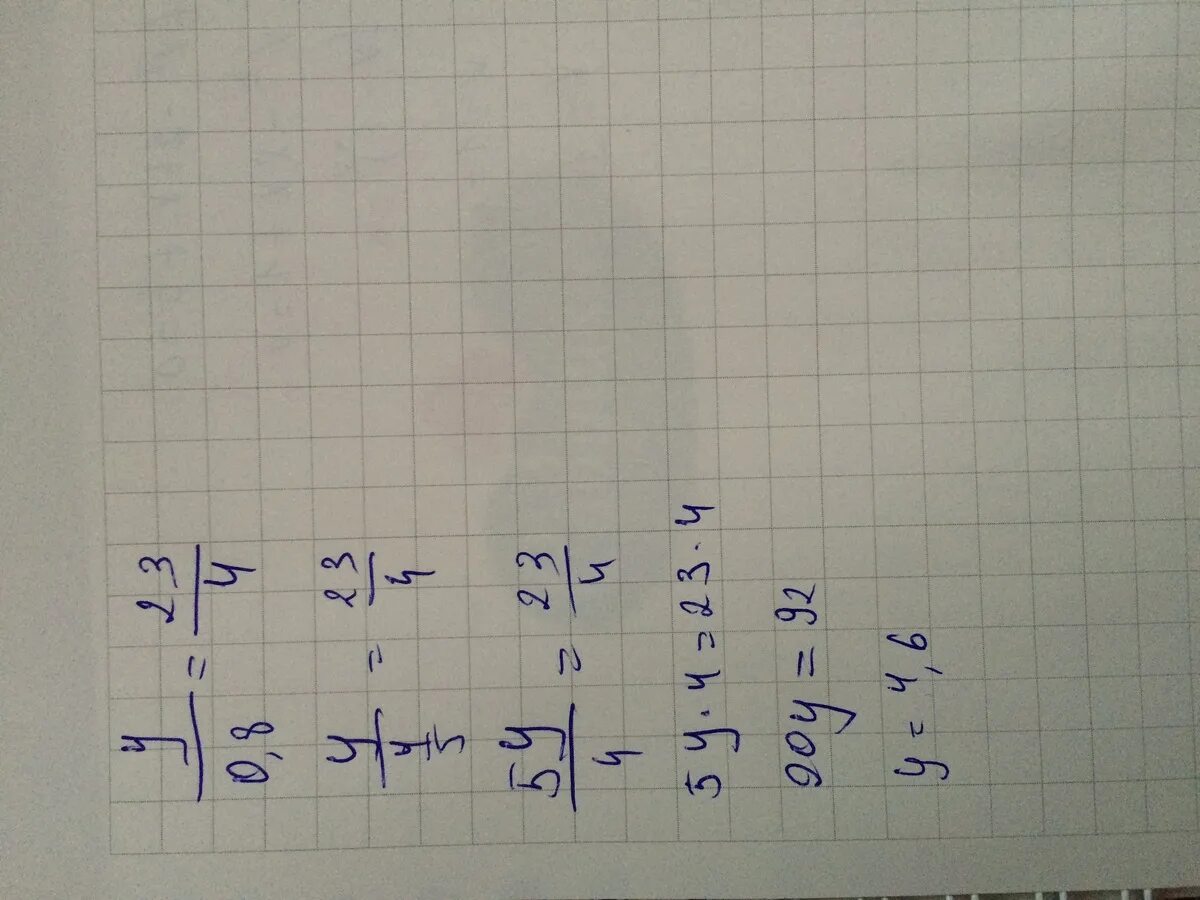 y/0,8 = 23/4
y/(4/5) = 23/4
5y/4 = 23/4
5y · 4 = 23 · 4
20y = 92
y = 4,6